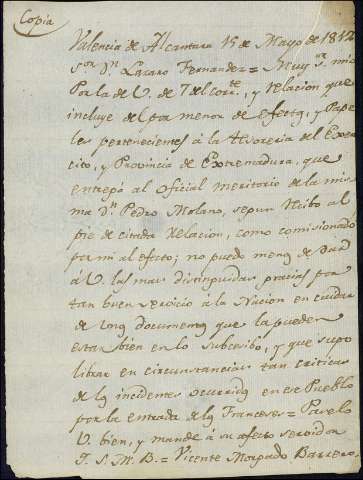 Copia
Valencia de Alcantara 15 de Mayo de 1812
Sor. Dn. Lazaro Fernandez = Muy Sr. mio
Por la de V. de 7 del corrte., y relacion que
incluye del por menor de efectos, y Pape
les pertenecientes á la Thesoreria del Exer
cito, y Provincia de Extremadura, que
entregó al Oficial meritorio de la mis
ma Dn. Pedro Molano, segun Recibo al
pie de citada Relacion, como comisionado
por mi al efecto; no puedo menos de dar
á V. las mas distinguidas gracias por
tan buen servicio á la Nacion en cuidar
de unos documentos que la pueden
estar bien en lo subcesibo, y que supo
librar en circunstancias tan criticas
de los incidentes ocurridos en ese Pueblo
por la entrada de los Franceses = Paselo
V. bien, y mande á su afecto servidor
Q. S. M. B. = Vicente Morgado Barrero.